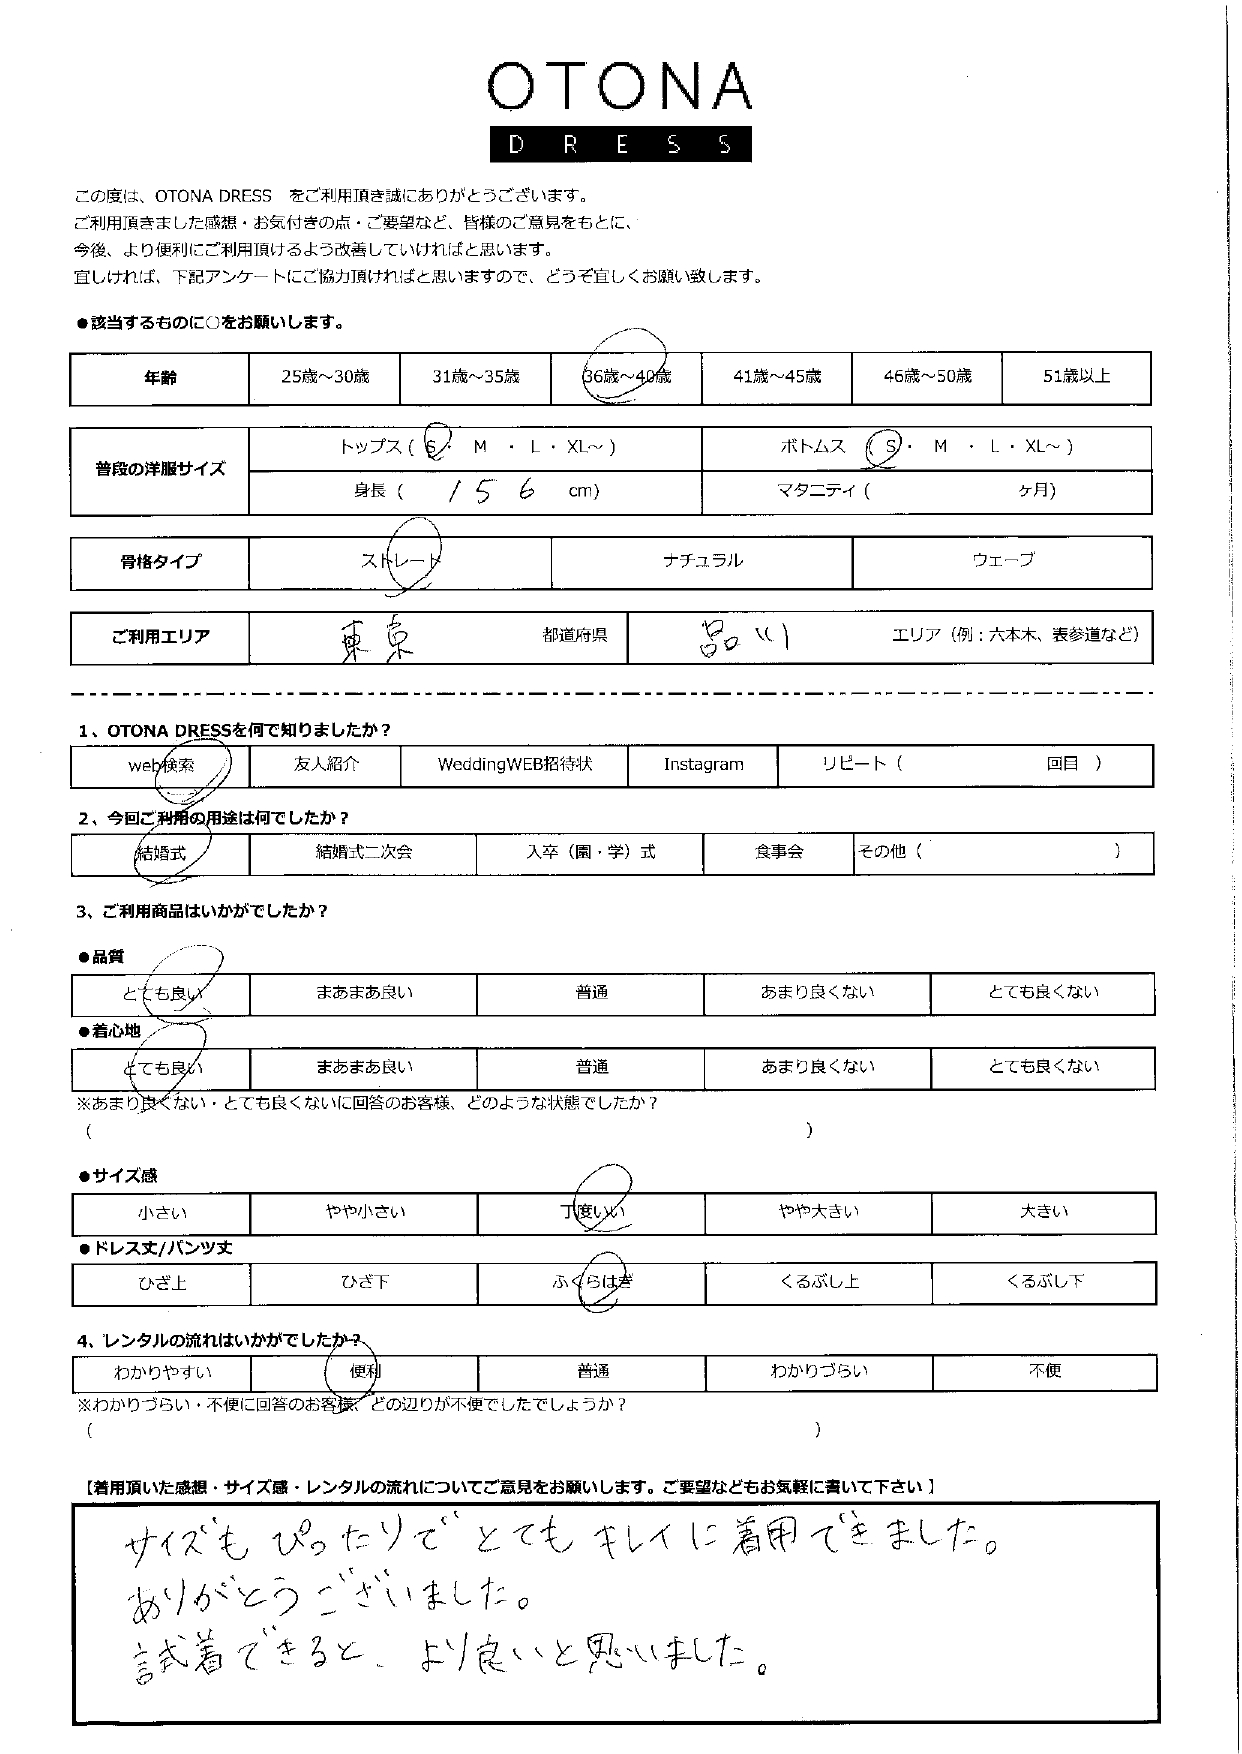 OTONA
DRESS
この度は、OTONA DRESS をご利用頂き誠にありがとうございます。
ご利用頂きました感想・お気付きの点・ご要望など、皆様のご意見をもとに、
今後、より便利にご利用頂けるよう改善していければと思います。
宜しければ、下記アンケートにご協力頂ければと思いますので、どうぞ宜しくお願い致します。
●該当するものに○をお願いします。
年齢 25歳～30歳 31歳～35歳 36歳～40歳 41歳～45歳 46歳～50歳 51歳以上
普段の洋服サイズ トップス ( S ・ M ・ L ・ XL～ ) ボトムス ( S ・ M ・ L ・ XL～ )
身長 ( 156 cm) マタニティ ( ヶ月)
骨格タイプ ストレート ナチュラル ウェーブ
ご利用エリア 東京 都道府県 品川 エリア（例：六本木、表参道など）
1、OTONA DRESSを何で知りましたか？
web検索 友人紹介 WeddingWEB招待状 Instagram リピート（ 回目 ）
2、今回ご利用の用途は何でしたか？
結婚式 結婚式二次会 入卒（園・学）式 食事会 その他（ ）
3、ご利用商品はいかがでしたか？
●品質
とても良い まあまあ良い 普通 あまり良くない とても良くない
●着心地
とても良い まあまあ良い 普通 あまり良くない とても良くない
※あまり良くない・とても良くないに回答のお客様、どのような状態でしたか？
( )
●サイズ感
小さい やや小さい 丁度いい やや大きい 大きい
●ドレス丈/パンツ丈
ひざ上 ひざ下 ふくらはぎ くるぶし上 くるぶし下
4、レンタルの流れはいかがでしたか？
わかりやすい 便利 普通 わかりづらい 不便
※わかりづらい・不便に回答のお客様、どの辺りが不便でしたでしょうか？
( )
【着用頂いた感想・サイズ感・レンタルの流れについてご意見をお願いします。ご要望などもお気軽に書いて下さい】
サイズもぴったりでとてもキレイに着用できました。
ありがとうございました。
試着できると、より良いと思いました。